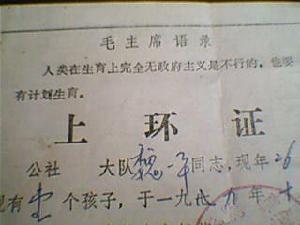 毛主席语录
人类在生育上完全无政府主义是不行的，也要
有计划生育。
上 环 证
公社 大队 同志，现年26
现有 个孩子，于一九七 年十